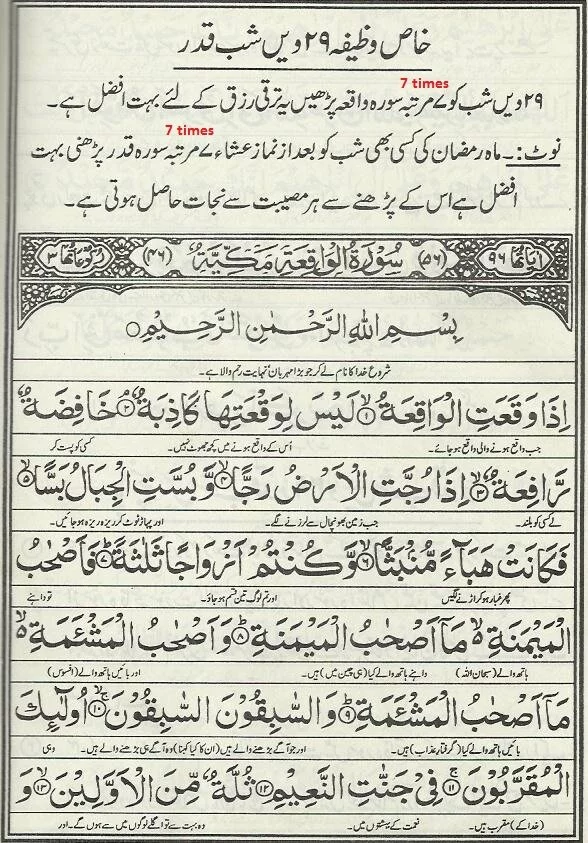 خاص وظیفہ ۲۹ ویں شب قدر
7 times
۲۹ ویں شب کو ۷ مرتبہ سورہ واقعہ پڑھیں یہ ترقی رزق کے لئے بہت افضل ہے۔
7 times
نوٹ:۔ ماہ رمضان کی کسی بھی شب کو بعد از نماز عشاء ۷ مرتبہ سورہ قدر پڑھنی بہت
افضل ہے اس کے پڑھنے سے ہر مصیبت سے نجات حاصل ہوتی ہے۔
اٰیاتھا ۹۶ (۵۶) سُوْرَۃُ الْوَاقِعَۃِ مَکِّیَّۃٌ (۴۶) رکوعاتھا ۳
بِسْمِ اللّٰهِ الرَّحْمٰنِ الرَّحِیْمِ
شروع خدا کا نام لے کر جو بڑا مہربان نہایت رحم والا ہے۔
اِذَا وَقَعَتِ الْوَاقِعَةُ ۙ۱ لَیْسَ لِوَقْعَتِهَا كَاذِبَةٌ ۘ۲ خَافِضَةٌ
جب واقع ہونے والی واقع ہو جائے۔ اُس کے واقع ہونے میں کچھ جھوٹ نہیں۔ کسی کو پست کر
رَّافِعَةٌ ۙ۳ اِذَا رُجَّتِ الْاَرْضُ رَجًّا ۙ۴ وَّ بُسَّتِ الْجِبَالُ بَسًّا ۙ۵
لے کسی کو بلند۔ جب زمین بھونچال سے لرزنے لگے۔ اور پہاڑ ٹوٹ کر ریزہ ریزہ ہو جائیں۔
فَكَانَتْ هَبَآءً مُّنْۢبَثًّا ۙ۶ وَّ كُنْتُمْ اَزْوَاجًا ثَلٰثَةً ؕ۷ فَاَصْحٰبُ
پھر غبار ہو کر اڑنے لگیں اور تم لوگ تین قسم ہو جاؤ۔ تو داہنے
الْمَیْمَنَةِ ۙ مَاۤ اَصْحٰبُ الْمَیْمَنَةِ ؕ۸ وَ اَصْحٰبُ الْمَشْـَٔمَةِ ۙ
ہاتھ والے (سبحان اللہ) داہنے ہاتھ والے کیا (ہی چین میں) ہیں۔ اور بائیں ہاتھ والے (افسوس)
مَاۤ اَصْحٰبُ الْمَشْـَٔمَةِ ؕ۹ وَ السّٰبِقُوْنَ السّٰبِقُوْنَ ۚۙ۱۰ اُولٰٓىِٕكَ
بائیں ہاتھ والے کیا (گرفتار عذاب) ہیں۔ اور جو آگے بڑھنے والے ہیں (ان کا کیا کہنا) وہ آگے ہی بڑھنے والے ہیں۔ وہی
الْمُقَرَّبُوْنَ ۚ۱۱ فِیْ جَنّٰتِ النَّعِیْمِ ۱۲ ثُلَّةٌ مِّنَ الْاَوَّلِیْنَ ۙ۱۳ وَ
(خدا کے) مقرب ہیں۔ نعمت کے بہشتوں میں۔ وہ بہت سے تو اگلے لوگوں میں سے ہوں گے۔ اور